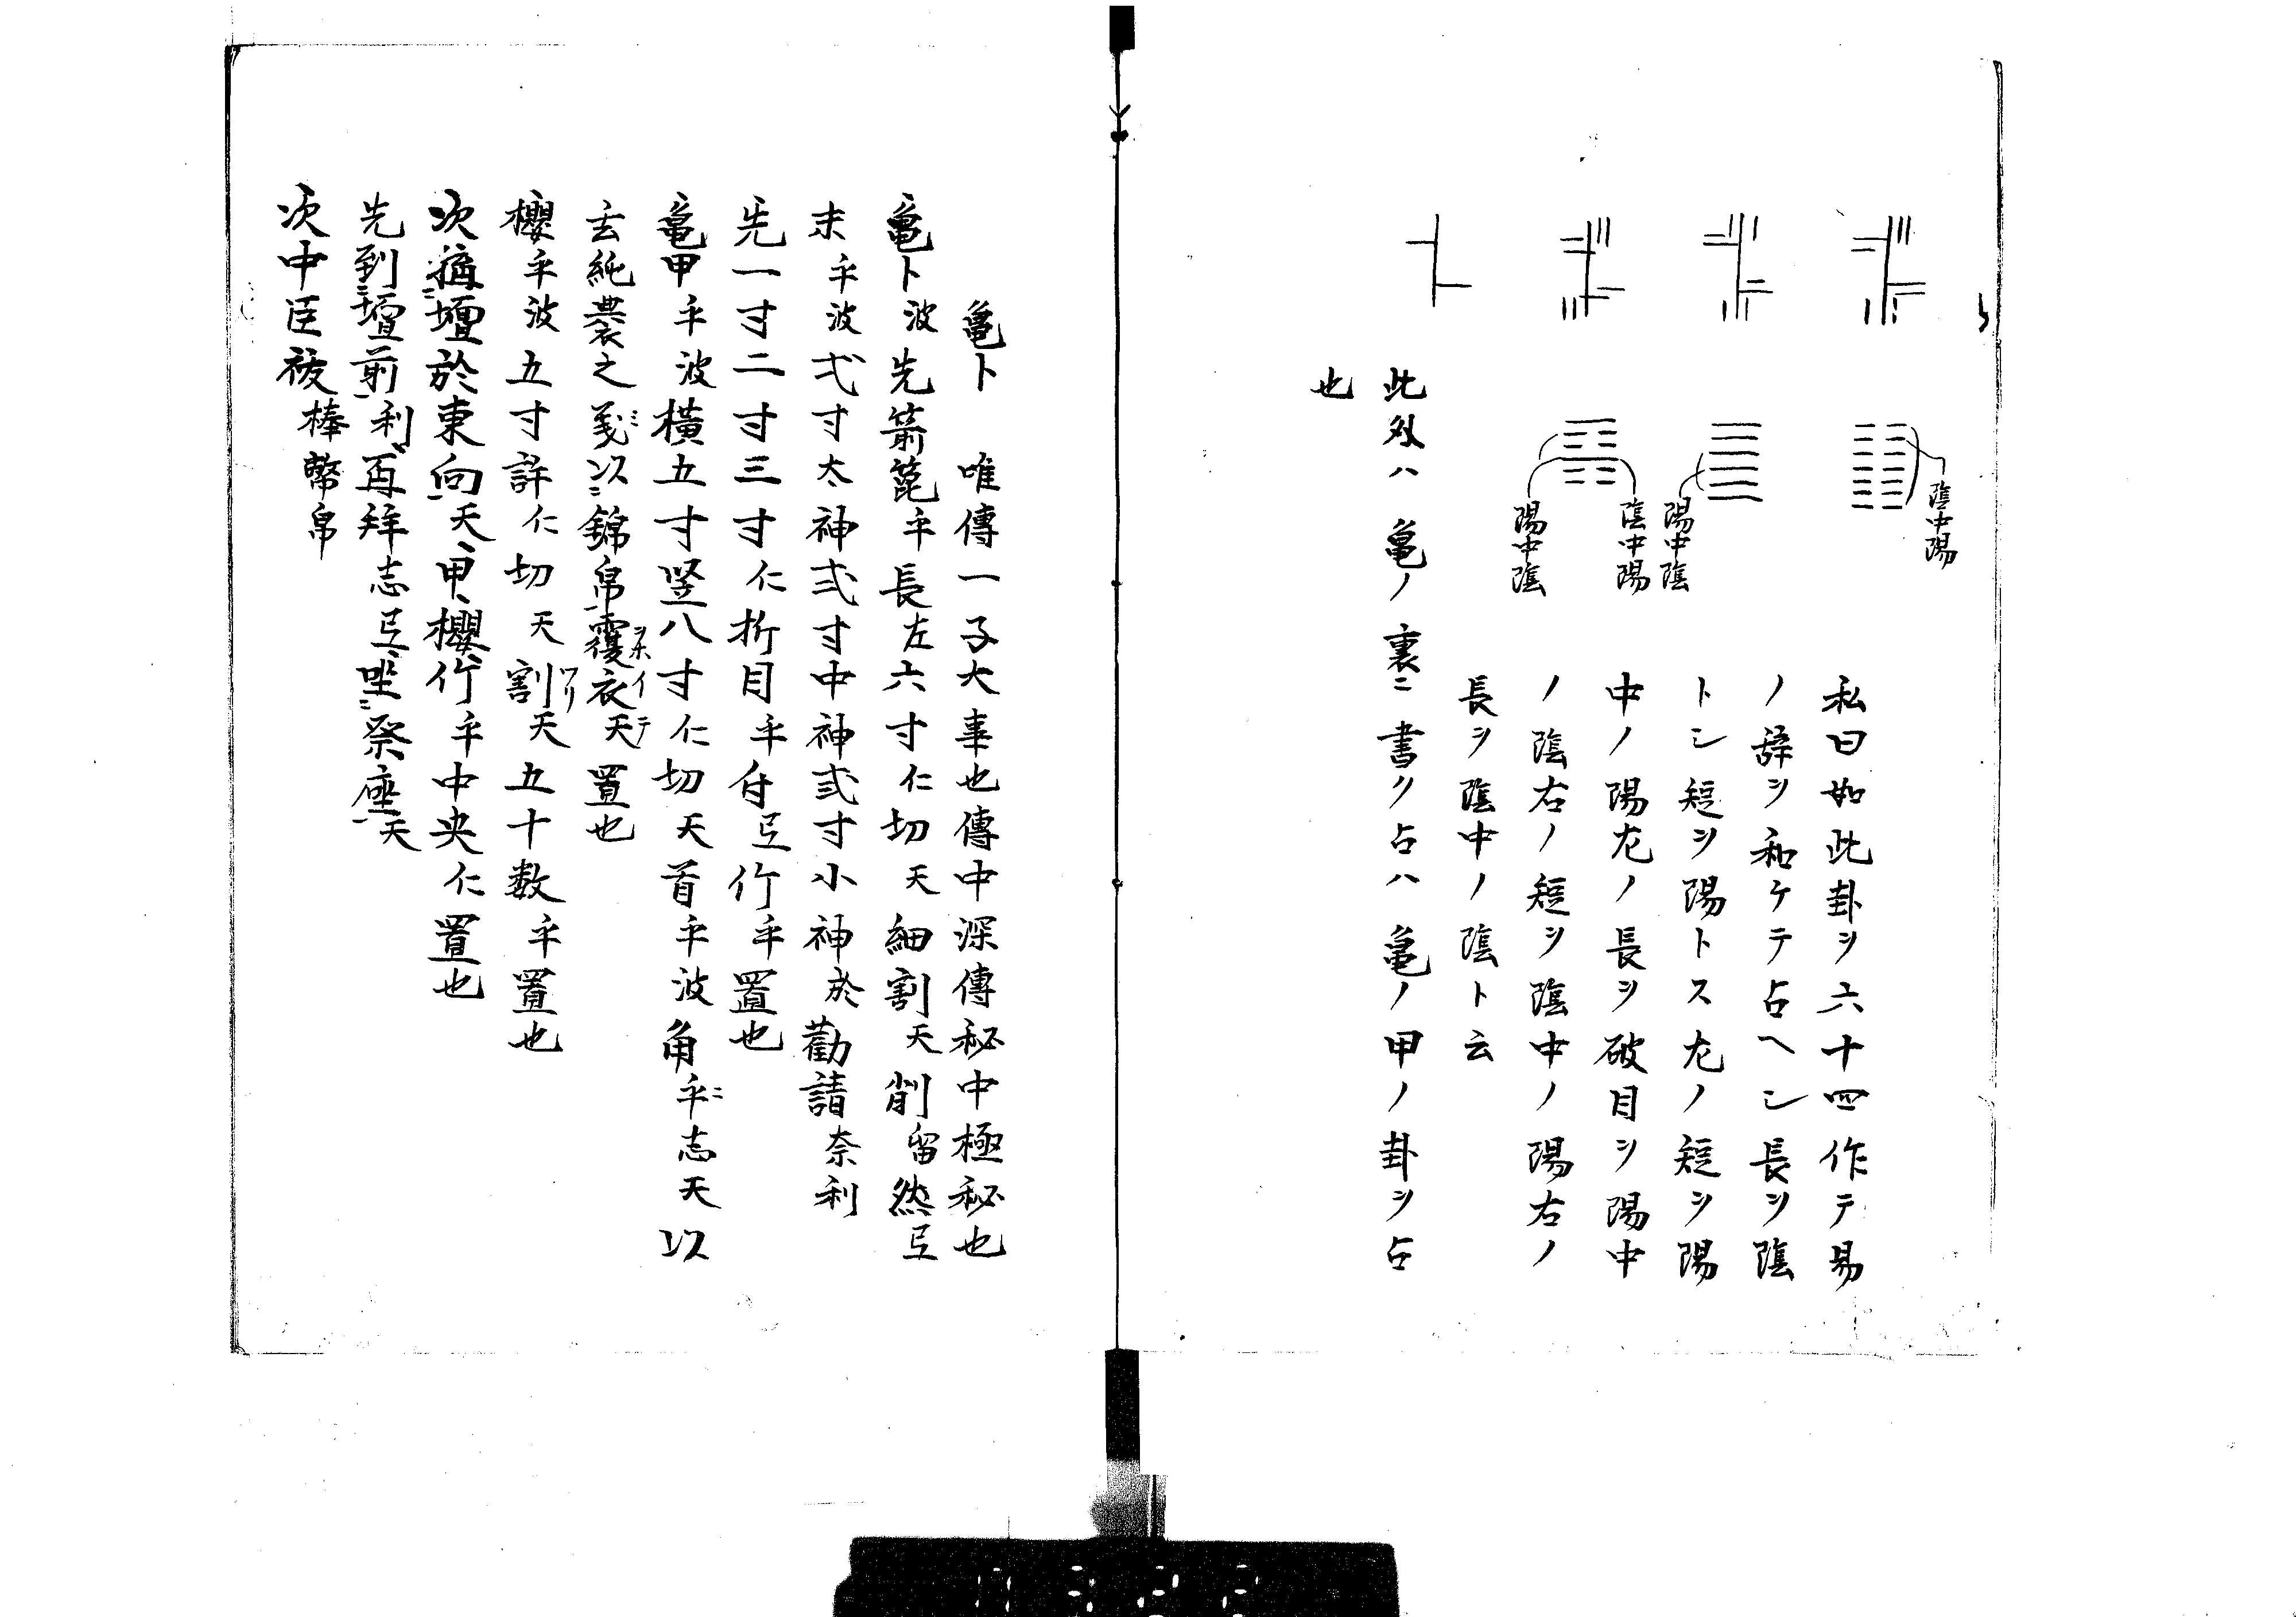 陰中陽
陽中陰
陰中陽
陽中陰
私曰如此卦ヲ六十四作テ易
ノ辞ヲ和ケテ占ヘシ長ヲ陰
トシ短ヲ陽トス左ノ短ヲ陽
中ノ陽左ノ長ヲ破目ヲ陽中
ノ陰右ノ短ヲ陰中ノ陽右ノ
長ヲ陰中ノ陰ト云
此外ハ亀ノ裏ニ書ク占ハ亀ノ甲ノ卦ヲ占
也
亀卜 唯傳一子大事也傳中深傳秘中極秘也
亀卜波先箭箆乎長左六寸仁切天細割天削留然弖
末乎波弐寸大神弐寸中神弐寸小神於勸請奈利
先一寸二寸三寸仁折目乎付弖竹乎置也
亀甲乎波橫五寸竪八寸仁切天首乎波角乎ニ志天以
玄純裏之以ニ錦帛覆衣天置也
櫻乎波五寸許仁切天割天五十数乎置也
次壇於東向天甲櫻竹乎中央仁置也
先到ニ壇前利再拜志弖坐ニ祭座天
次中臣祓棒幣帛